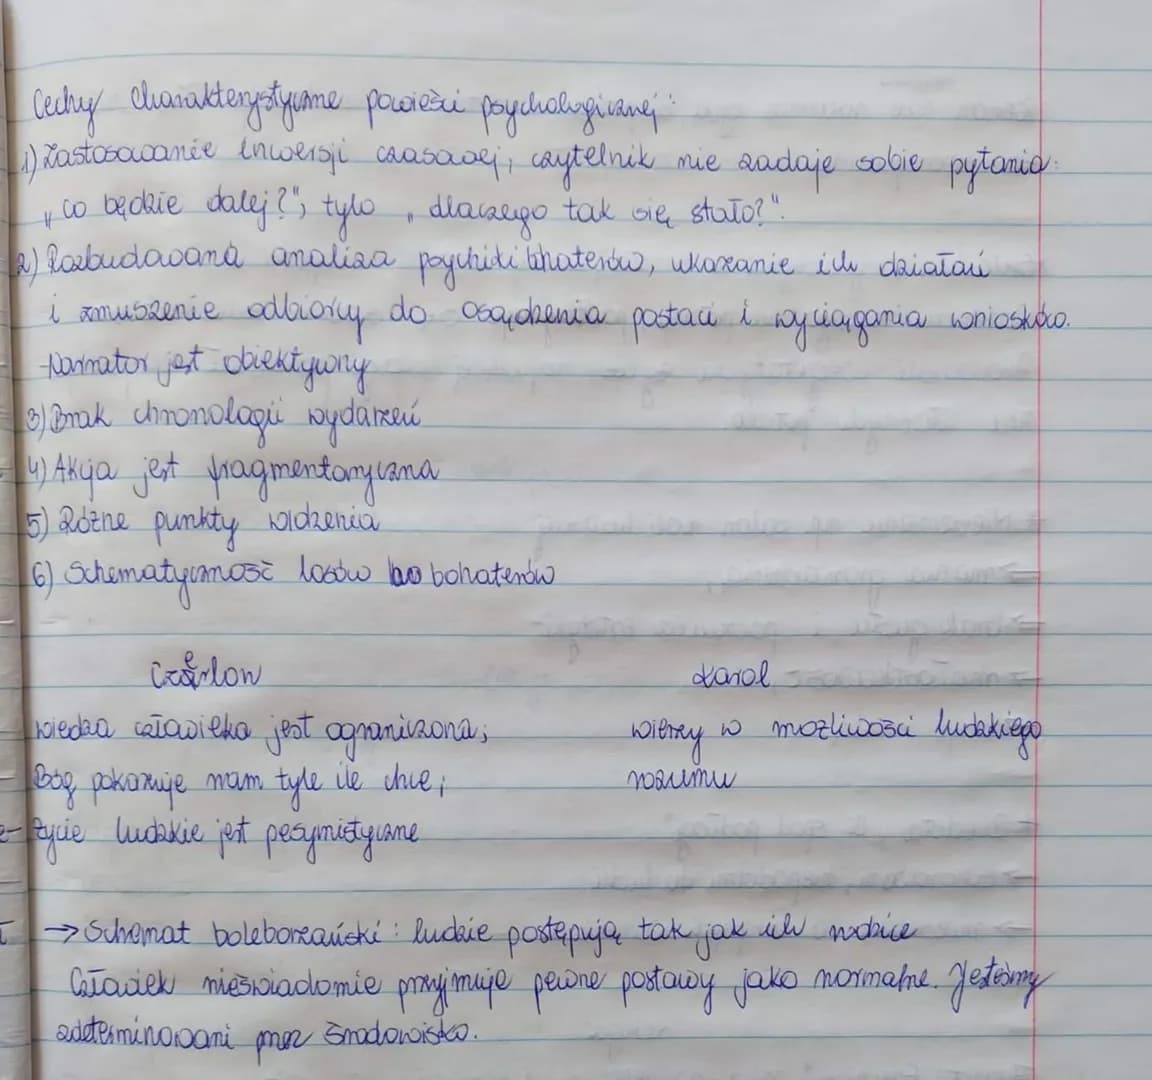 Cechy charakterystyczne powieści psychologicznej:
1) Zastosowanie inwersji czasowej, czytelnik nie zadaje sobie pytania:
"co będzie dalej?", tylo "dlaczego tak się stało?".
2) Rozbudowana analiza psychiki bhaterów, ukazanie ich działań
i zmuszenie odbiorcy do osądzenia postaci i wyciągania wniosków.
Narrator jest obiektywny
3) Brak chronologii wydarzeń
4) Akcja jest fragmentaryczna
5) Różne punkty widzenia
6) Schematyczność losów bohaterów
Czerlow Karol
wiedza człowieka jest ograniczona; wierzy w możliwości ludzkiego
Bóg pokazuje nam tyle ile chce; rozumu
życie ludzkie jest pesymistyczne
→ Schemat boleborzański: ludzie postępują tak jak ich rodzice
Człowiek nieświadomie przyjmuje pewne postawy jako normalne. Jesteśmy
zdeterminowani przez środowisko.